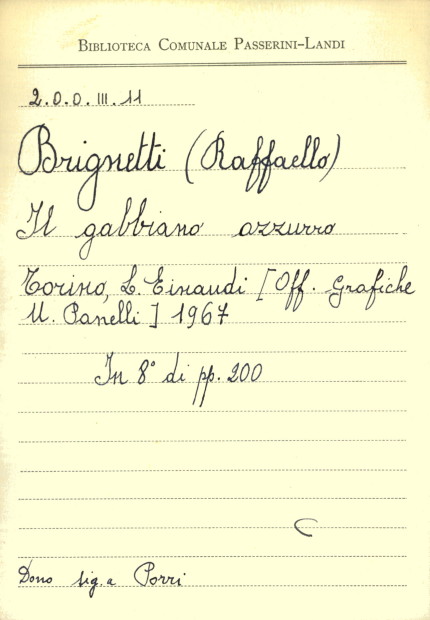 BIBLIOTECA COMUNALE PASSERINI-LANDI
2.0.0.III.11
Brignetti (Raffaello)
Il gabbiano azzurro
Torino, L. Einaudi [Off. Grafiche
U. Panelli] 1967
In 8° di pp. 200
Dono sig.a Porri